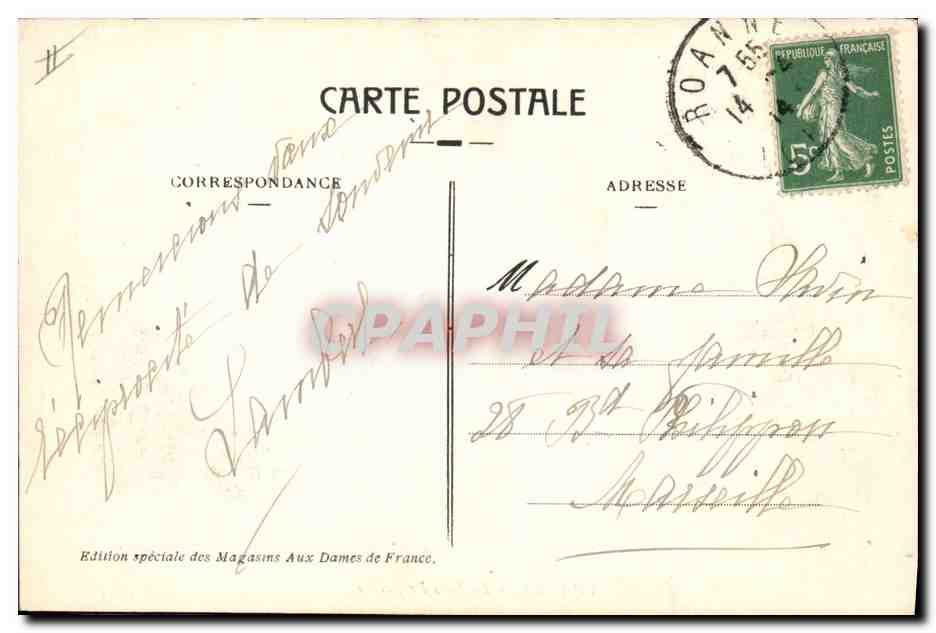 II
CARTE POSTALE
CORRESPONDANCE
ADRESSE
ROANNE
7 55
14 -2
14
REPUBLIQUE FRANÇAISE
5c
POSTES
Remercions vœux
réciprocité de souvenir
Lambert
Madame
et sa famille
28 Bd Philippon
Marseille
CPAPHIL
Edition spéciale des Magasins Aux Dames de France.